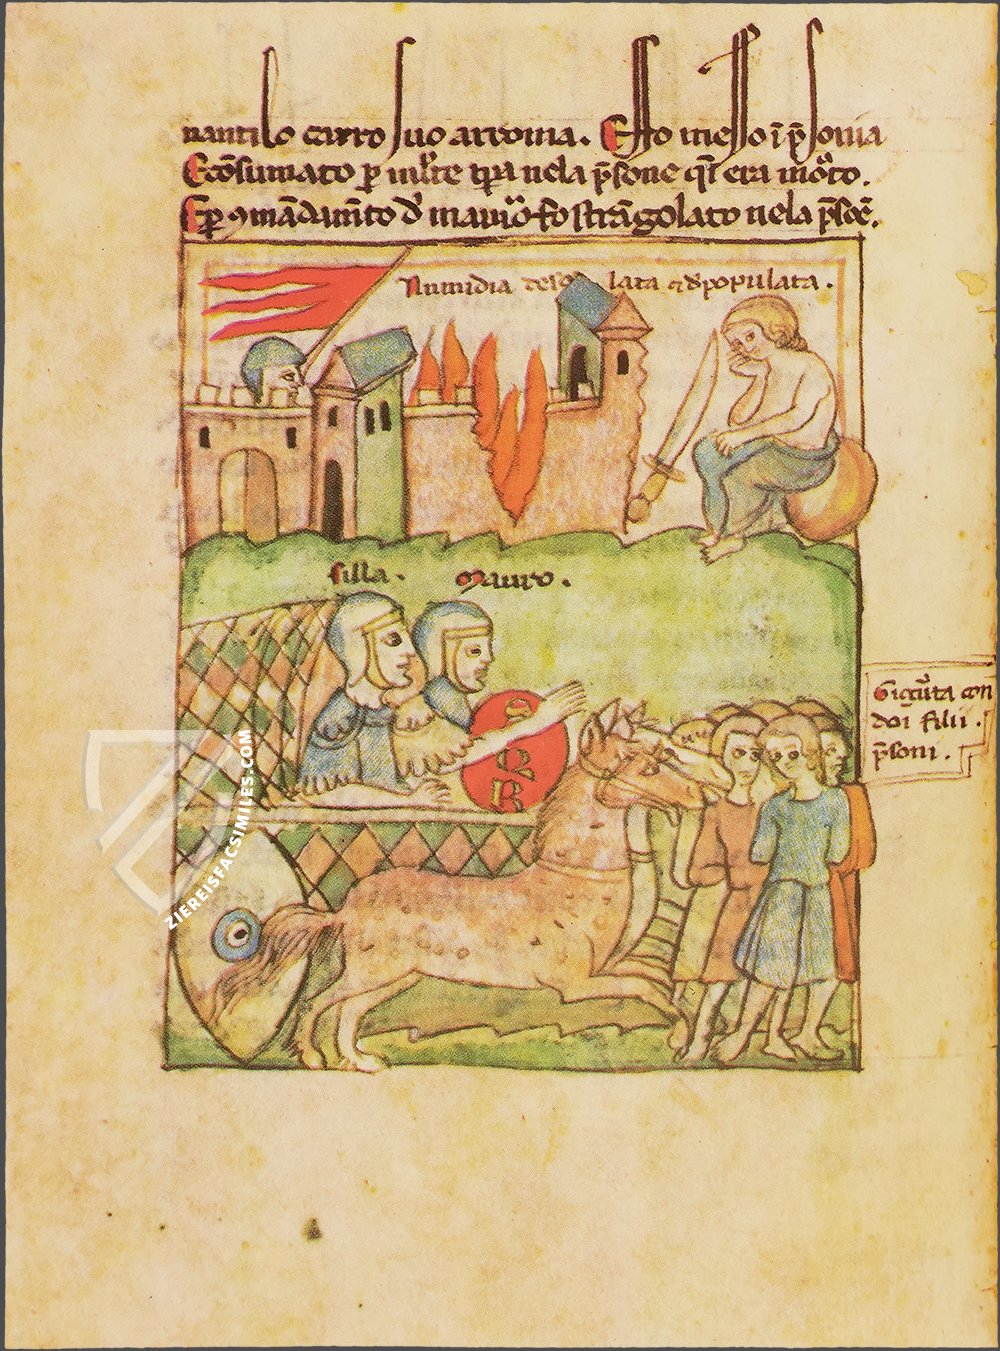 nantilo carro suo arroma. Esso messo ī p̄sonia
Ecōsumato p mlr̄te tpa nela p̄sone qn̄ era mōto.
Ep ꝯmādam̄to d' mauro fo strāgolato nela p̄soē.
Numidia deso lata ⁊ d'populata.
silla. Mauro.
Gigurta con
doi filii.
p̄soni.
S
P Q
R
ZIEREISFACSIMILES.COM